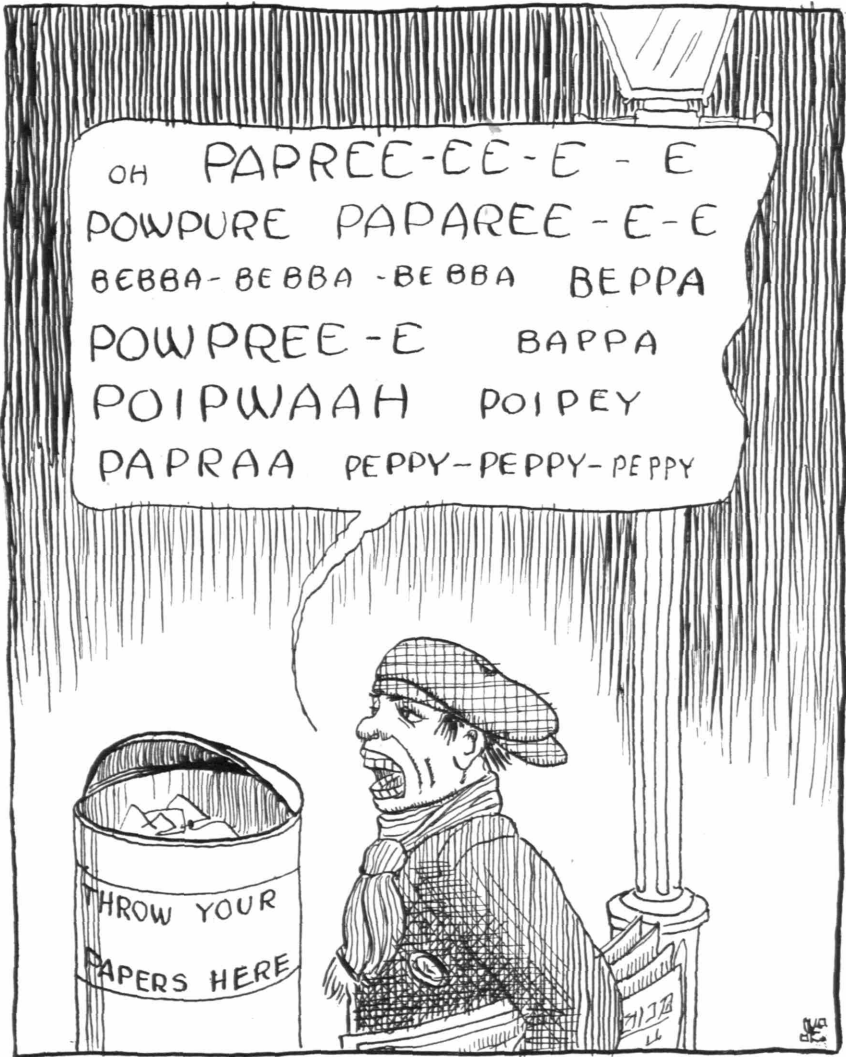 OH PAPREE-EE-E - E
POWPURE PAPAREE - E-E
BEBBA-BEBBA-BEBBA BEPPA
POWPREE-E BAPPA
POIPWAAH POIPEY
PAPRAA PEPPY-PEPPY-PEPPY
THROW YOUR
PAPERS HERE